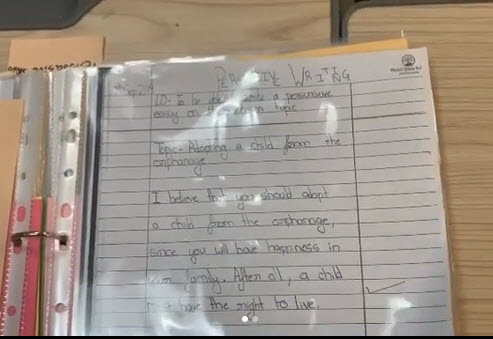 PERSUASIVE WRITING
LO:- To be able to write a persuasive
essay on the given topic
Topic:- Adopting a child from the
orphanage
I believe that you should adopt
a child from the orphanage,
since you will have happiness in
your family. After all, a child
have the right to live.